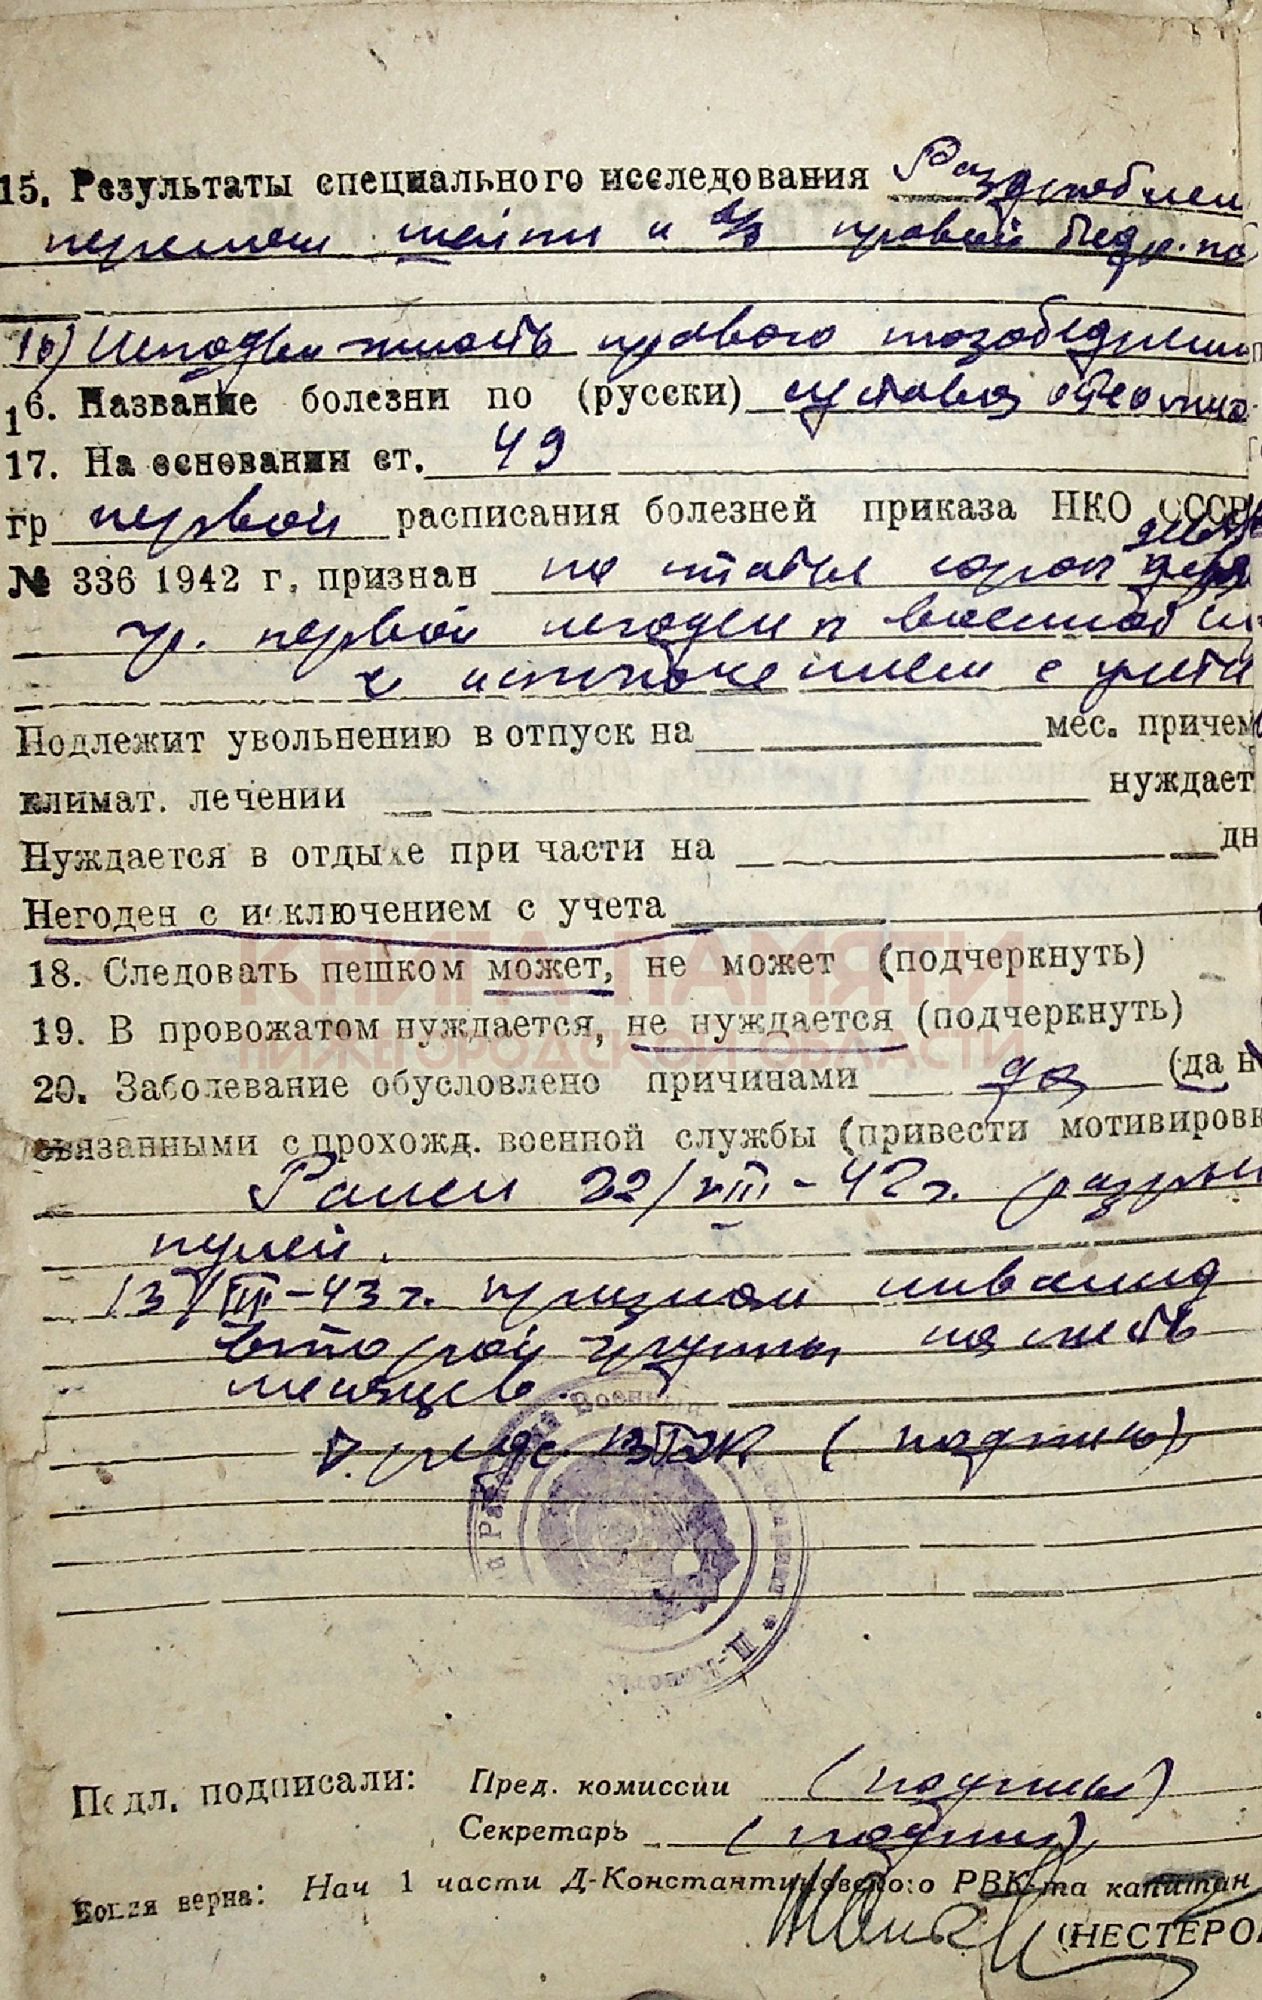 15. Результаты специального исследования Раздроблен
перелом шейки и в/з правой бедр. ко
16) Неподвижность правого тазобедренн
16. Название болезни по (русски) сустава
17. На основании ст. 49
гр первой расписания болезней приказа НКО СССР
№ 336 1942 г, признан по статье сорок девя
гр. первой негоден к военной сл
с исключением с учета
Подлежит увольнению в отпуск на мес. причем
климат. лечении нуждает
Нуждается в отдыхе при части на дн
Негоден с исключением с учета
КНИГА ПАМЯТИ
18. Следовать пешком может, не может (подчеркнуть)
19. В провожатом нуждается, не нуждается (подчеркнуть)
НИЖЕГОРОДСКОЙ ОБЛАСТИ
20. Заболевание обусловлено причинами да (да н
связанными с прохожд. военной службы (привести мотивировк
Ранен 22/VIII-42г. разрыв
пулей.
13/III-43г. признан инвалид
второй группы на шесть
месяцев.
Пред. ВТЭК (подпись)
Военный
Подл. подписали: Пред. комиссии (подпись)
Секретарь (подпись)
Копия верна: Нач 1 части Д-Константиновского РВК-та капитан
(НЕСТЕРОВ